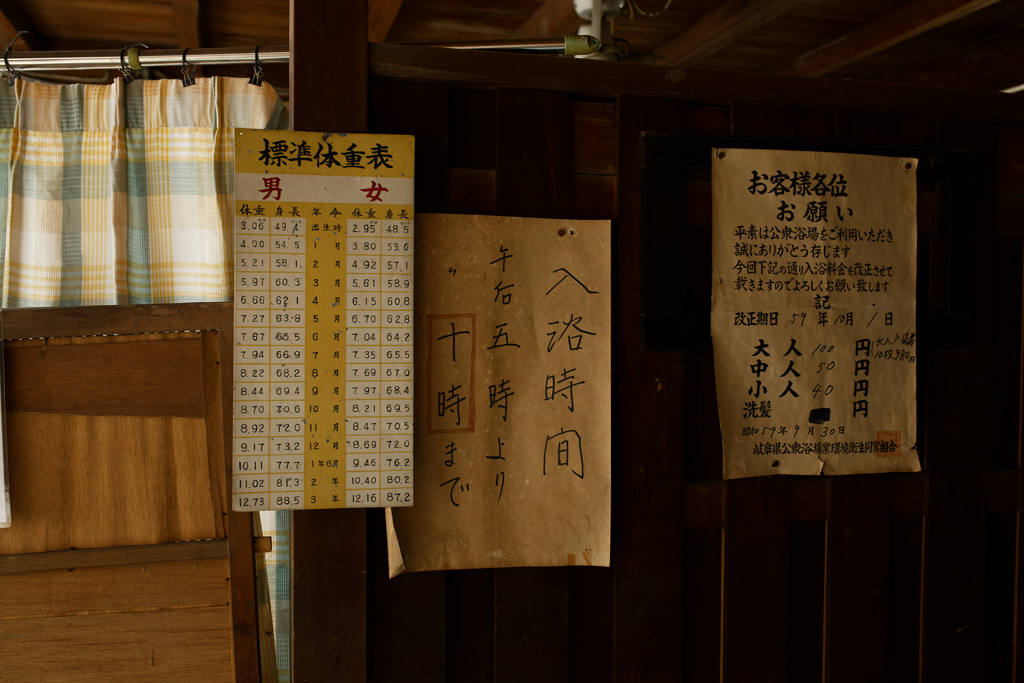 標準体重表
男 女
体重 身長 年令 体重 身長
3.06 49.4 出生時 2.95 48.5
4.00 54.5 1月 3.80 53.6
5.21 58.1 2月 4.92 57.1
5.97 60.3 3月 5.61 58.9
6.66 62.1 4月 6.15 60.8
7.27 63.8 5月 6.70 62.8
7.67 65.5 6月 7.04 64.2
7.94 66.9 7月 7.35 65.5
8.22 68.2 8月 7.69 67.0
8.44 69.4 9月 7.97 68.4
8.70 70.6 10月 8.21 69.5
8.92 72.0 11月 8.47 70.5
9.17 73.2 12月 8.69 72.0
10.11 77.7 1年6月 9.46 76.2
11.02 81.3 2年 10.40 80.2
12.73 88.5 3年 12.16 87.2
入浴時間
午后五時より
〃十時まで
お客様各位
お願い
平素は公衆浴場をご利用いただき
誠にありがとう存じます
今回下記の通り入浴料金を改正させて
戴きますのでよろしくお願い致します
記
改正期日 59年10月1日
大人 100円 (大人入浴券
10枚 980円
中人 50円
小人 40円
洗髪 円
昭和59年9月30日
岐阜県公衆浴場業環境衛生同業組合